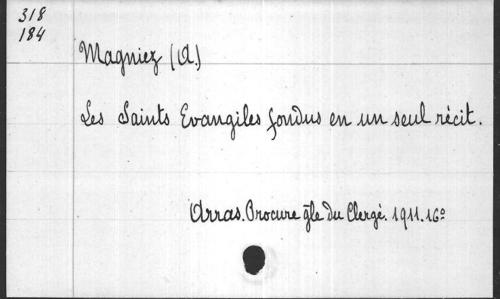 318
184
Magniez (A.)
Les Saints Evangiles fondus en un seul récit.
Arras. Procure gle du Clergé. 1911. 16º